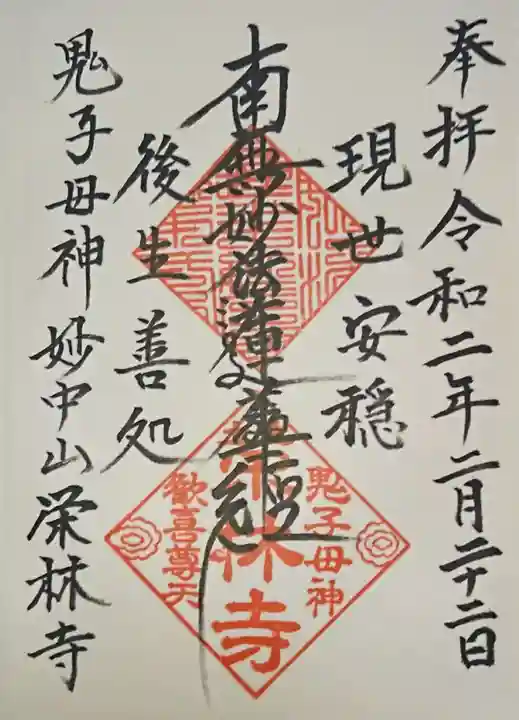 奉拝令和二年二月二十二日
現世安穏
南無妙法蓮華経
後生善処
鬼子母神妙中山栄林寺
鬼子母神
栄林寺
歓喜尊天